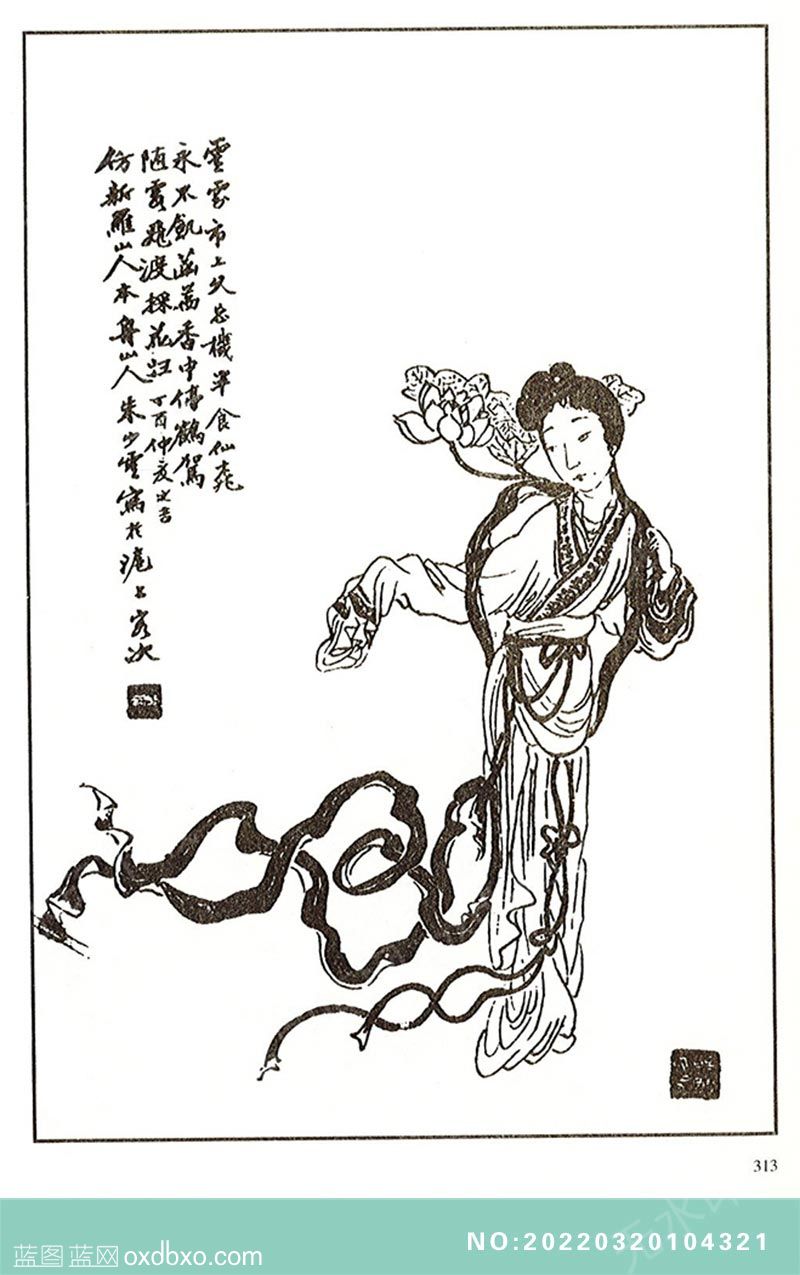 雲霧市上久忘機半食仙桃
永不飢菡萏香中停鶴駕
随雲飛渡採花归 丁酉仲夏之吉
仿新羅山人本舜山人朱少雲寫於滬上客次
313
蓝图蓝网oxdbxo.com
NO:20220320104321